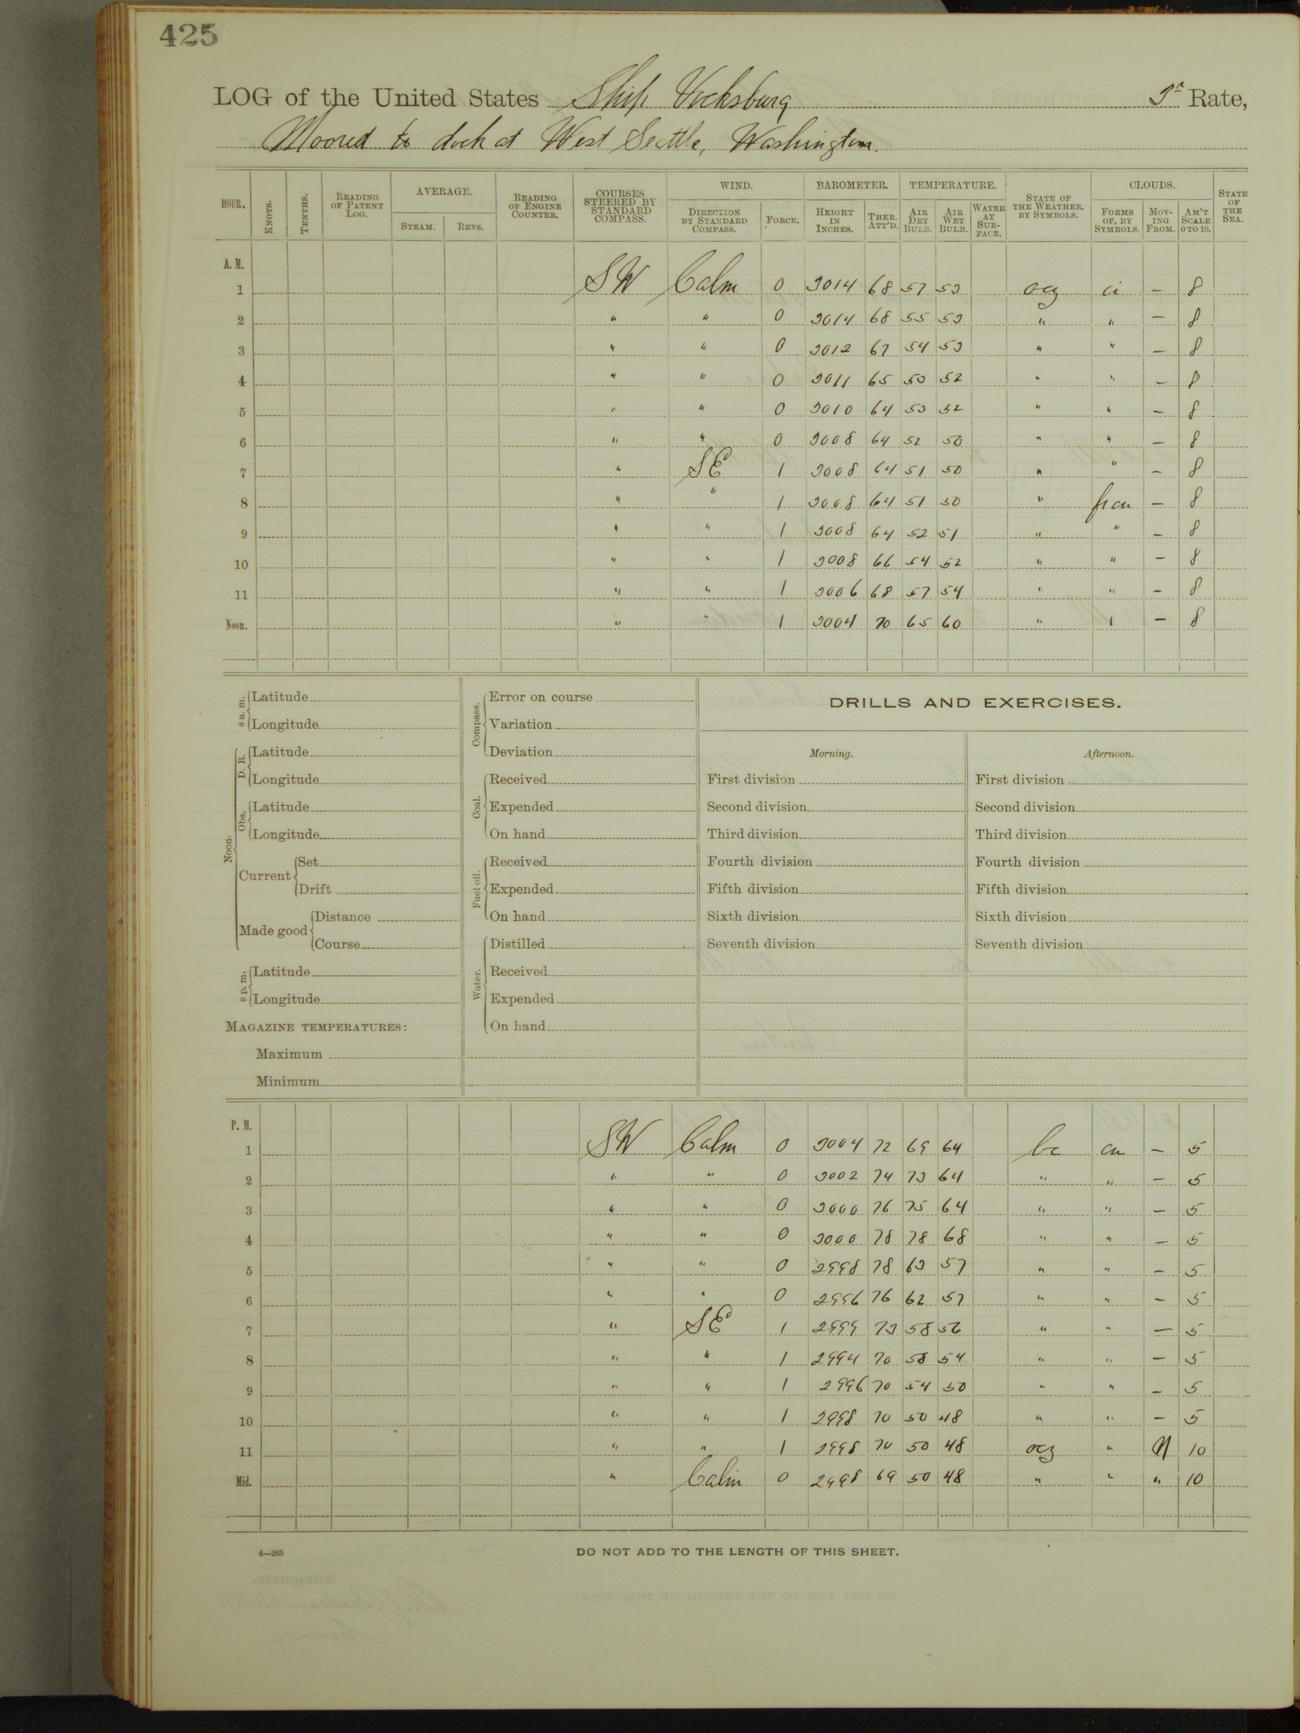 425
LOG of the United States Ship Vicksburg 3d Rate,
Moored to dock at West Seattle, Washington.
HOUR. KNOTS. TENTHS. READING OF PATENT LOG. AVERAGE. STEAM. REVS. READING OF ENGINE COUNTER. COURSES STEERED BY STANDARD COMPASS. WIND. DIRECTION BY STANDARD COMPASS. FORCE. BAROMETER. HEIGHT IN INCHES. THER. ATT'D. TEMPERATURE. AIR DRY BULB. AIR WET BULB. WATER AT SURFACE. STATE OF THE WEATHER, BY SYMBOLS. CLOUDS. FORMS OF, BY SYMBOLS. MOVING FROM. AM'T SCALE 0 TO 10. STATE OF THE SEA.
A. M.
1 SW Calm 0 3014 68 57 53 ocg ci — 8
2 " " 0 3014 68 55 53 " " — 8
3 " " 0 3012 67 54 53 " " — 8
4 " " 0 3011 65 53 52 " " — 8
5 " " 0 3010 64 53 52 " " — 8
6 " " 0 3008 64 52 50 " " — 8
7 " SE 1 3008 64 51 50 " " — 8
8 " " 1 3008 64 51 50 " frcu — 8
9 " " 1 3008 64 52 51 " " — 8
10 " " 1 3008 66 54 52 " " — 8
11 " " 1 3006 68 57 54 " " — 8
Noon. " " 1 3004 70 65 60 " " — 8
DRILLS AND EXERCISES.
Morning. Afternoon.
8 a. m. Latitude
Longitude
Noon. D. R. Latitude
Longitude
Obs. Latitude
Longitude
Current Set
Drift
Made good Distance
Course
8 p. m. Latitude
Longitude
MAGAZINE TEMPERATURES:
Maximum
Minimum
Compass. Error on course
Variation
Deviation
Coal. Received
Expended
On hand
Fuel oil. Received
Expended
On hand
Water. Distilled
Received
Expended
On hand
First division First division
Second division Second division
Third division Third division
Fourth division Fourth division
Fifth division Fifth division
Sixth division Sixth division
Seventh division Seventh division
P. M.
1 SW Calm 0 3004 72 69 64 bc cu — 5
2 " " 0 3002 74 73 64 " " — 5
3 " " 0 3000 76 75 64 " " — 5
4 " " 0 3000 78 78 68 " " — 5
5 " " 0 2998 78 63 57 " " — 5
6 " " 0 2996 76 62 57 " " — 5
7 " SE 1 2999 73 58 56 " " — 5
8 " " 1 2994 70 58 54 " " — 5
9 " " 1 2996 70 54 50 " " — 5
10 " " 1 2998 70 50 48 " " — 5
11 " " 1 2998 70 50 48 ocg " N 10
Mid. " Calm 0 2998 69 50 48 " " " 10
4—265 DO NOT ADD TO THE LENGTH OF THIS SHEET.